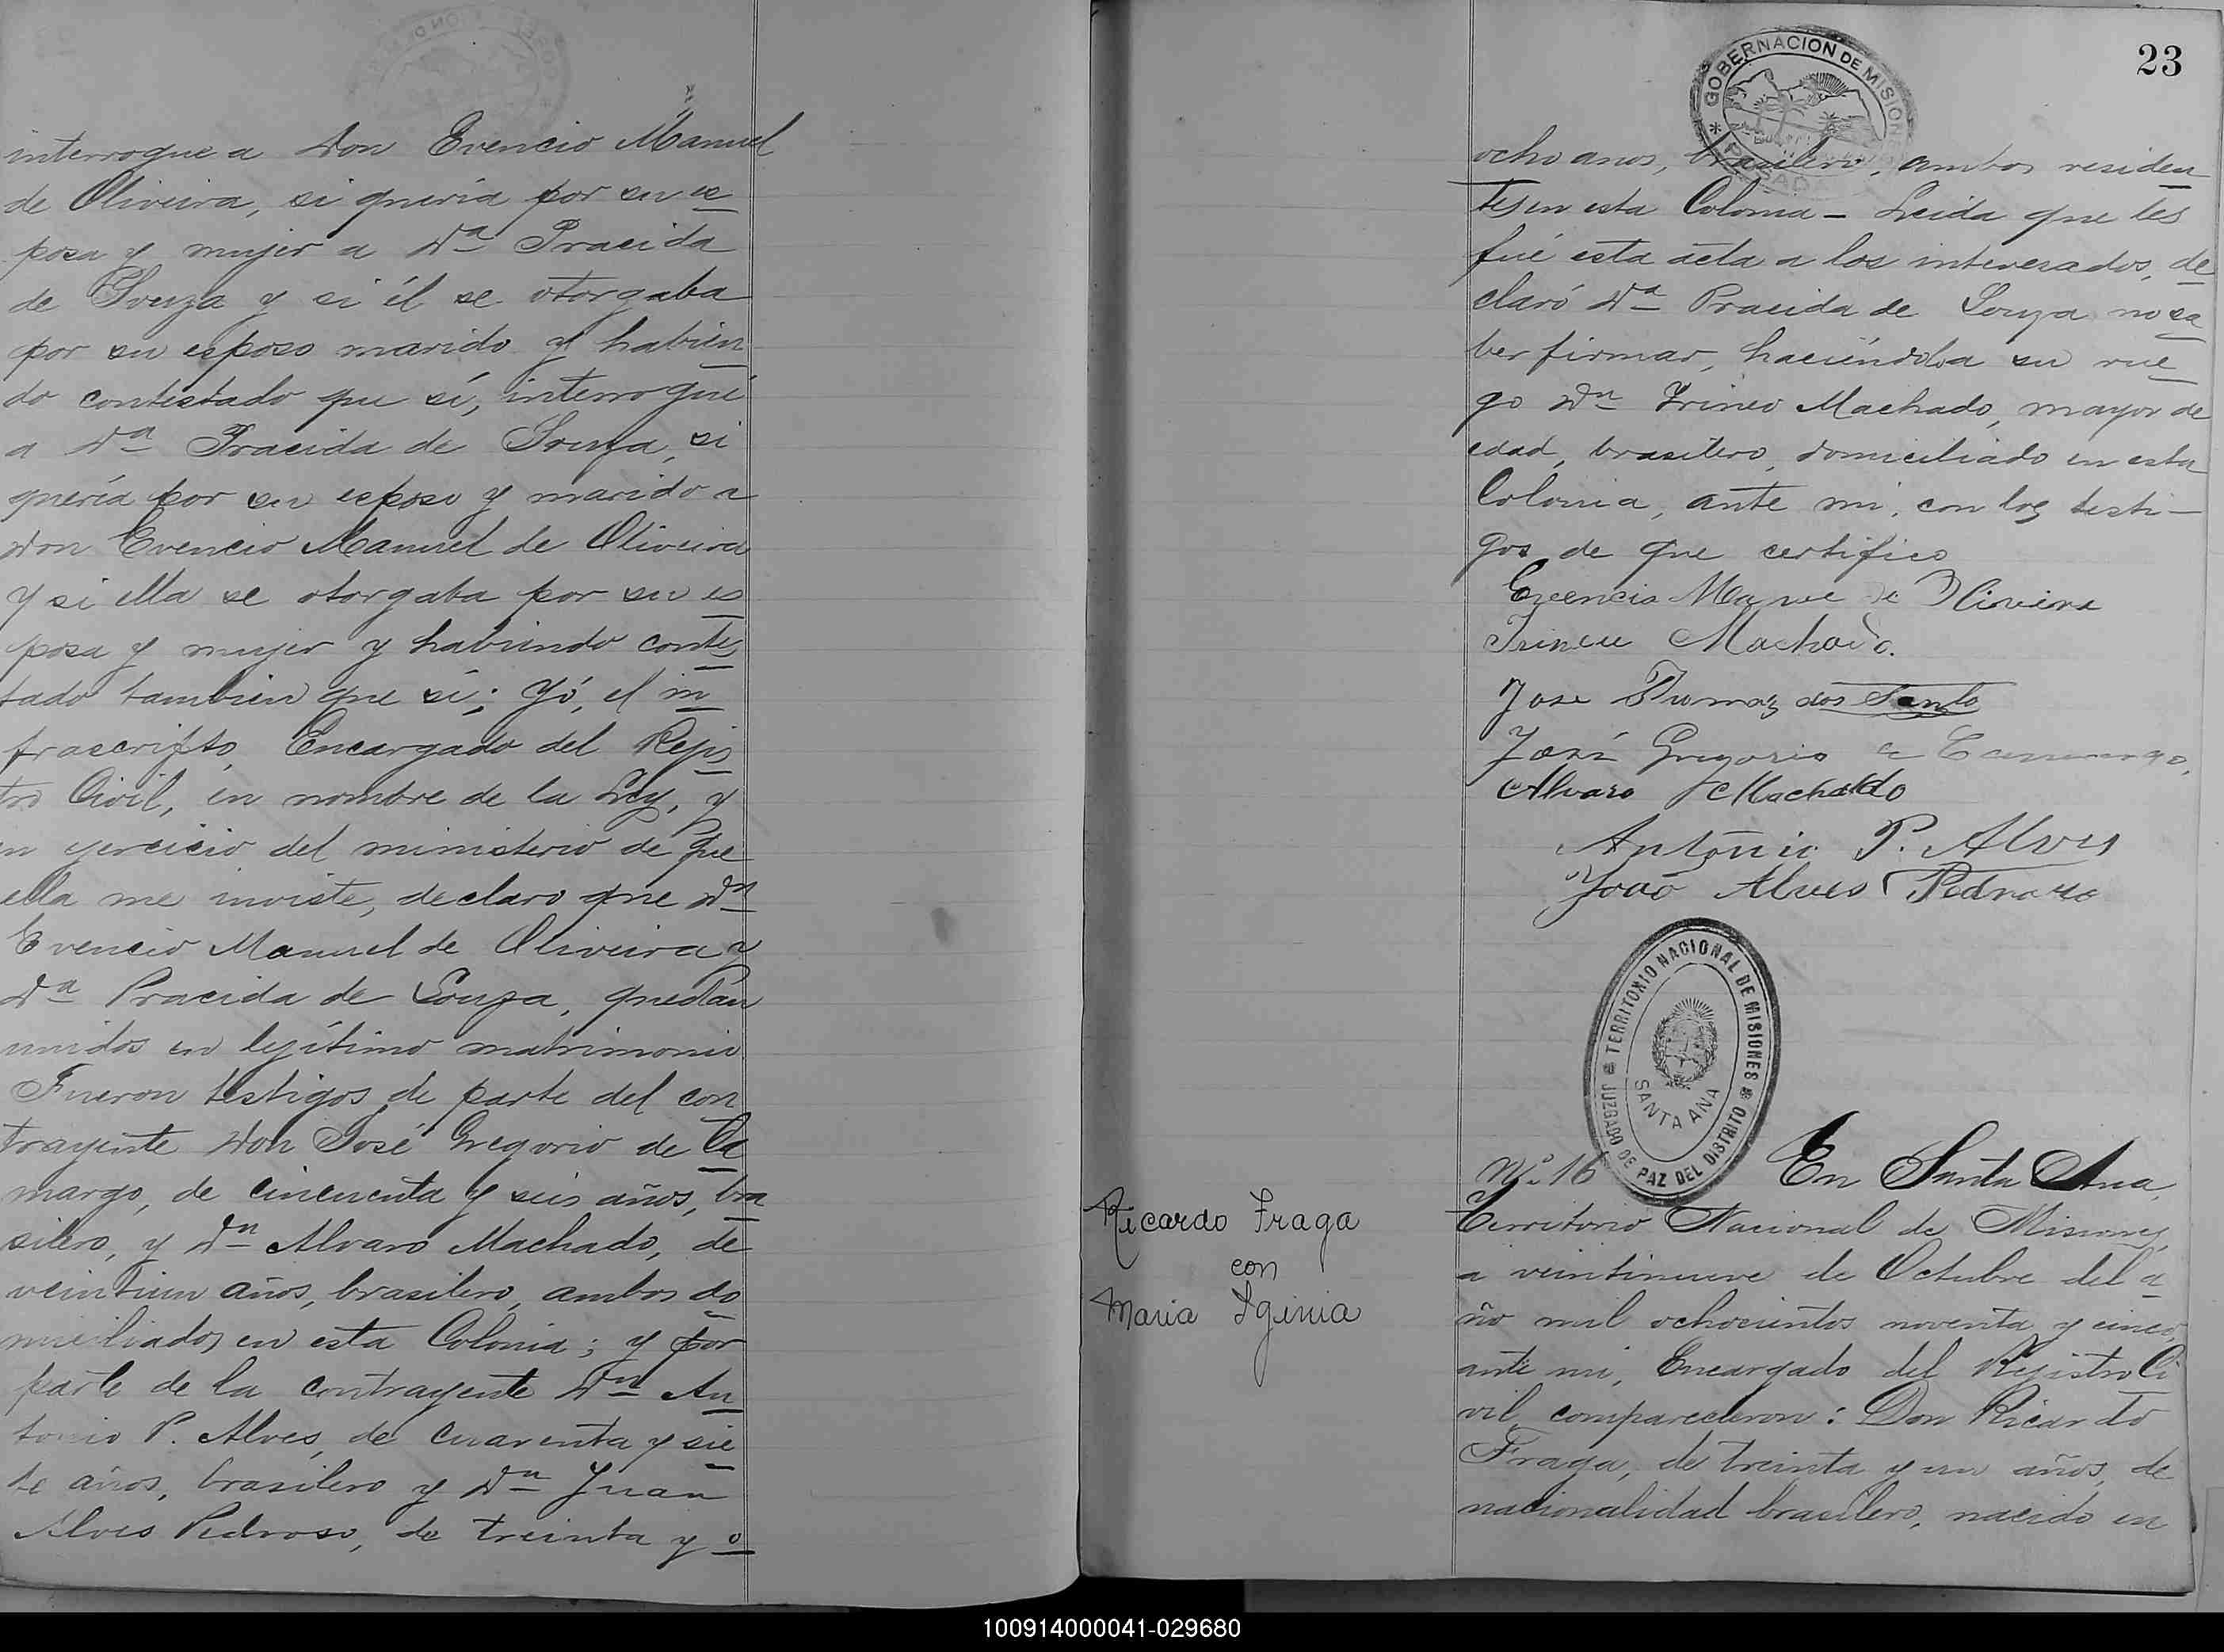 interrogue a Don Evencio Manuel
de Oliveira, si quería por su es
posa y mujer a Dª Pracida
de Souza y si él se otorgaba
por su esposo marido y habien
do contestado que sí, interrogué
a Dª Pracida de Souza, si
quería por su esposo y marido a
Don Evencio Manuel de Oliveira
y si ella se otorgaba por su es
posa y mujer y habiendo contes
tado tambien que sí; Yó, el in
frascripto, Encargado del Rejis
tro Civil, en nombre de la Ley, y
en ejercicio del ministerio de que
ella me inviste, declaro que Dn
Evencio Manuel de Oliveira y
Dª Pracida de Souza, quedan
unidos en lejítimo matrimonio
Fueron testigos de parte del con
trayente Don José Gregorio de Ca
margo, de cincuenta y seis años, bra
silero, y Dn Alvaro Machado, de
veintiun años, brasilero, ambos do
miciliados en esta Colonia; y por
parte de la contrayente Dn An
tonio P. Alves, de cuarenta y sie
te años, brasilero y Dn Juan
Alves Pedroso, de treinta y o
23
GOBERNACION DE MISIONES
POSADAS
ocho anos, brasilero, ambos residen
tes en esta Colonia – Leida que les
fué esta acta a los interesados, de
claró Dª Pracida de Souza no sa
ber firmar, haciéndola su rue
go Dn Irineo Machado, mayor de
edad, brasilero, domiciliado en esta
Colonia, ante mi, con los testi-
gos de que certifico
Evencio Manue de Oliveira
Irineu Machado.
Jose Tumaz dos Santo
José Gregorio de Camargo,
Alvaro Machado
Antonio P. Alves
João Alves Pedroso
TERRITORIO NACIONAL DE MISIONES
JUZGADO DE PAZ DEL DISTRITO
SANTA ANA
Nº 16 En Santa Ana,
Ricardo Fraga
con
Maria Iginia
Territorio Nacional de Misiones,
a veintinueve de Octubre del a
ño mil ochocientos noventa y cinco,
ante mi, Encargado del Rejistro Ci
vil, comparecieron: Don Ricardo
Fraga, de treinta y un años, de
nacionalidad brasilero, nacido en
100914000041-029680